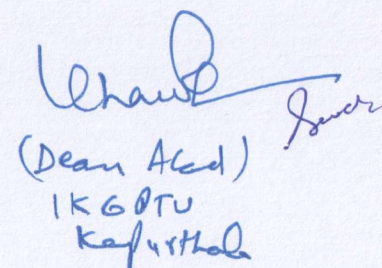 (Dean Acad)
IKGPTU
Kapurthala